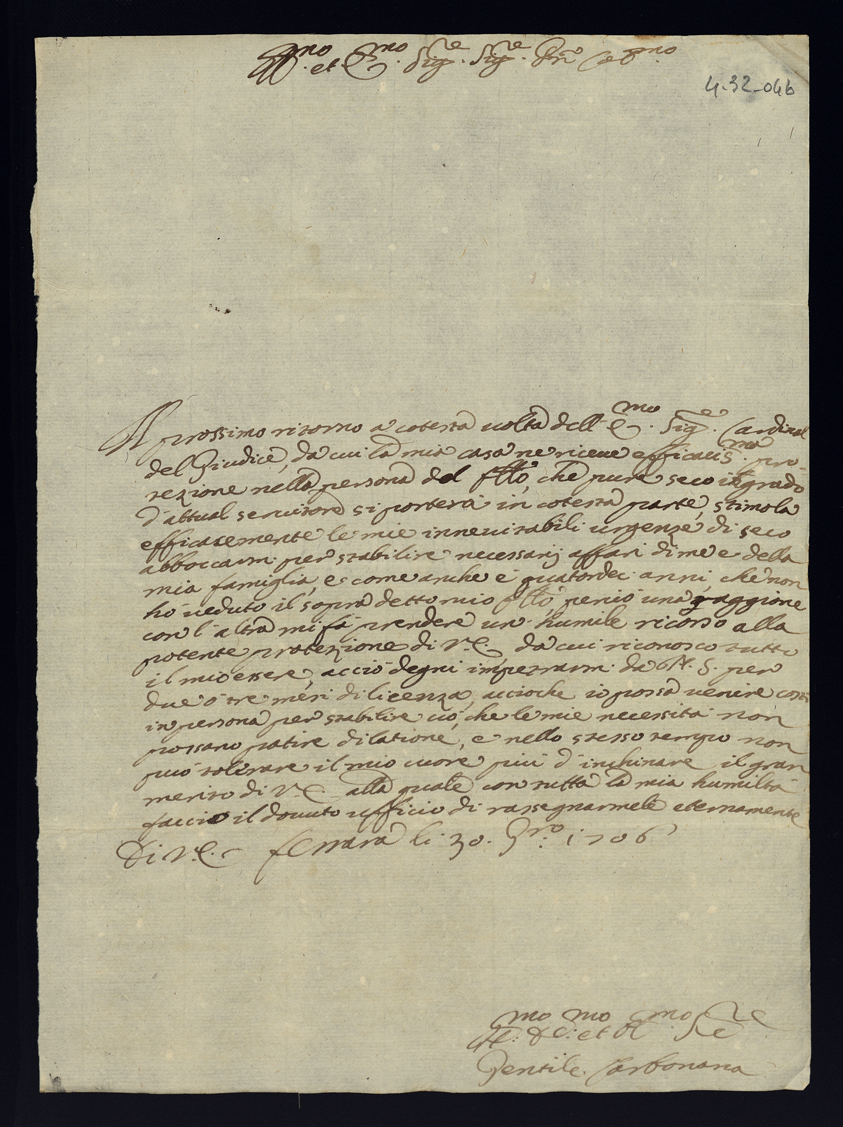 Ill.mo et Ecc.mo Sig.re Sig.re P.rone Col.mo
4.32-046
Il prossimo ritorno a cotesta volta dell'E.mo Sig.re Cardinal
del Giudice, da cui la mia casa ne riceve efficacis.ma pro-
tezione nella persona del f'llo, che pure seco in grado
d'attual servitore si porterà in cotesta parte, stimola
efficacemente le mie innevitabili urgenze di seco
abboccarmi per stabilire necessarij affari di me e della
mia famiglia, e come anche è quatordeci anni, che non
ho veduto il sopradetto mio f'llo, perciò una raggione
con l'altra mi fà prendere un humile ricorso alla
potente protezione di V.E. da cui riconosco tutto
il mio essere, acciò degni impetrarmi da N. S. per
due o tre mesi di licenza, accioche io possa venire costì
in persona per stabilire ciò, che le mie necessità non
possano patire dilatione, e nello stesso tempo non
può tolerare il mio cuore più d'inchinare il gran
merito di V.E. alla quale con tutta la mia humiltà
faccio il dovuto ufficio di rassegnarmele eternamente
Di V.E. Ferrara li 30. 9bro 1706
Hu.mo De.mo et Ob.mo Se.re
Gentile Carbonana